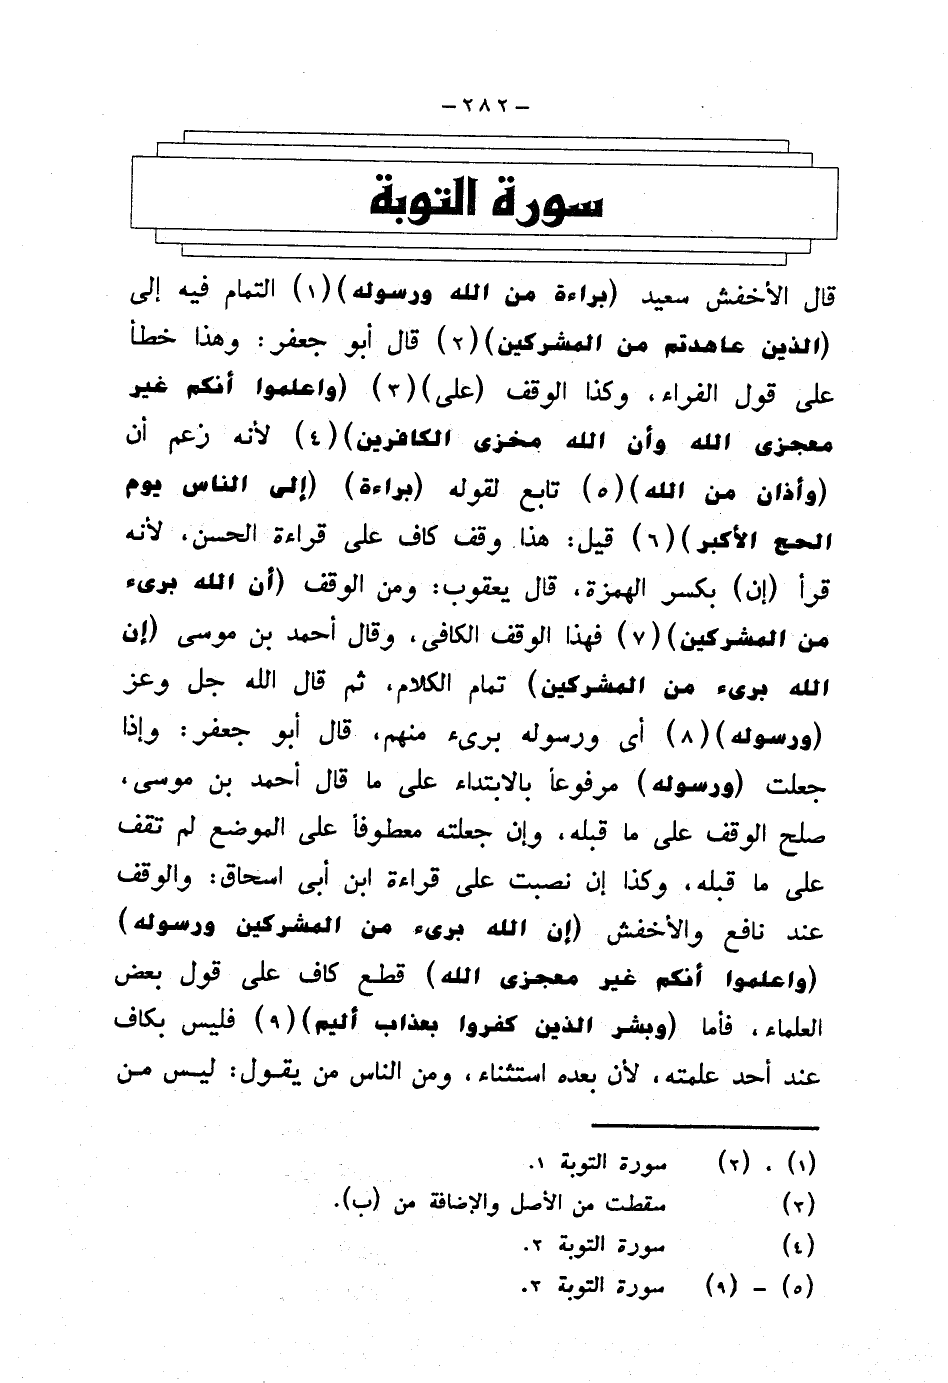 – ٢٨٢ –
سورة التوبة
قال الأخفش سعيد (براءة من الله ورسوله)(١) التمام فيه إلى
(الذين عاهدتم من المشركين)(٢) قال أبو جعفر: وهذا خطأ
على قول الفراء، وكذا الوقف (على)(٣) (واعلموا أنكم غير
معجزى الله وأن الله مخزى الكافرين)(٤) لأنه زعم أن
(وأذان من الله)(٥) تابع لقوله (براءة) (إلى الناس يوم
الحج الأكبر)(٦) قيل: هذا وقف كاف على قراءة الحسن، لأنه
قرأ (إن) بكسر الهمزة، قال يعقوب: ومن الوقف (أن الله برىء
من المشركين)(٧) فهذا الوقف الكافى، وقال أحمد بن موسى (إن
الله برىء من المشركين) تمام الكلام، ثم قال الله جل وعز
(ورسوله)(٨) أى ورسوله برىء منهم، قال أبو جعفر: وإذا
جعلت (ورسوله) مرفوعاً بالابتداء على ما قال أحمد بن موسى،
صلح الوقف على ما قبله، وإن جعلته معطوفاً على الموضع لم تقف
على ما قبله، وكذا إن نصبت على قراءة ابن أبى اسحاق: والوقف
عند نافع والأخفش (إن الله برىء من المشركين ورسوله)
(واعلموا أنكم غير معجزى الله) قطع كاف على قول بعض
العلماء، فأما (وبشر الذين كفروا بعذاب أليم)(٩) فليس بكاف
عند أحد علمته، لأن بعده استثناء، ومن الناس من يقول: ليس من
(١) ، (٢) سورة التوبة ١.
(٣) سقطت من الأصل والإضافة من (ب).
(٤) سورة التوبة ٢.
(٥) – (٩) سورة التوبة ٣.